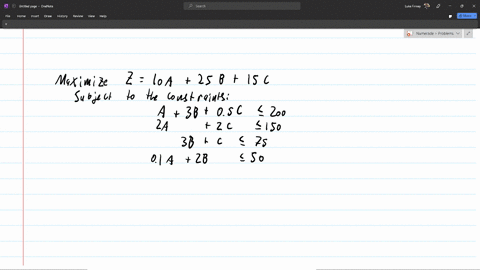 Untitled page - OneNote
Search
Home Insert Draw History Review View Help
Maximize Z = 10A + 25B + 15C
Subject to the constraints:
A + 3B + 0.5C ≤ 200
2A + 2C ≤ 150
3B + C ≤ 75
0.1A + 2B ≤ 50